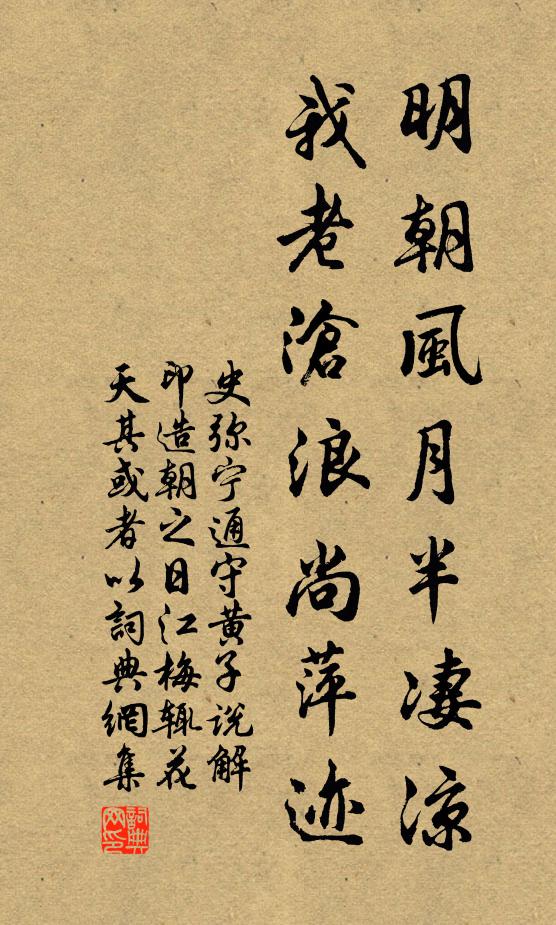 明朝風月半凄涼
我老滄浪尚萍迹
史弥宁通守黄子説解
印造朝之日江梅辄花
天其或者以詞典網集
詞典网印